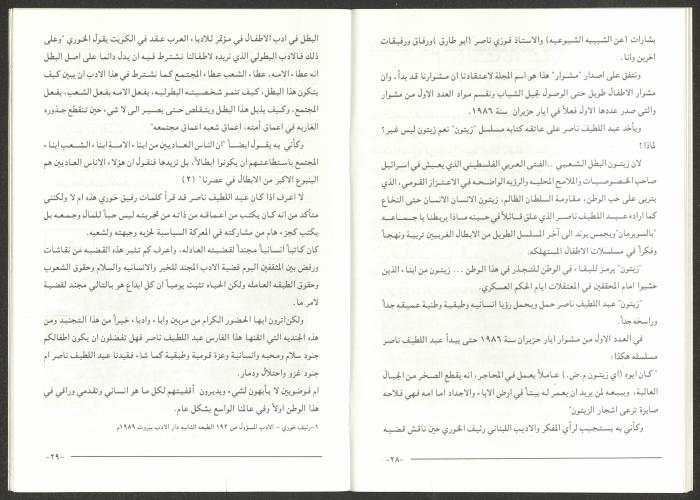 بشارات (عن الشبيبه الشيوعيه) والاستاذ فوزي ناصر (ابو طارق )ورفاق ورفيقات
اخرين وانا.
ونتفق على اصدار "مشوار" هذا هو اسم المجلة لاعتقادنا ان مشوارنا قد بدأ، وان
مشوار الاطفال طويل حتى الوصول لجيل الشباب ونقسم مواد العدد الاول من مشوار
والتي صدر عددها الاول فعلاً في ايار حزيران سنة ١٩٨٦.
ويأخد عبد اللطيف ناصر على عاتقه كتابه مسلسل "زيتون" نعم زيتون ليس غير؟
لماذا ؟
لان زيتون البطل الشعبي ..الفتى العربي الفلسطيني الذي يعيش في اسرائيل
صاحب الخصوصيات والملامح المحليه والرؤيه الواضحه في الاعتزاز القومي، الذي
يتربى على حب الوطن، مقاومة السلطان الظالم، زيتون الانسان الانسان حتى النخاع
كما اراده عبد اللطيف ناصر الذي علق قائلاً في حينه ماذا يربطنا يا جماعه
"بالسوبرمان"وبجمس بوند الى آخر المسلسل الطويل من الابطال الغريبين تربية ونهجاً
وفكراً في مسلسلات الاطفال المستهلكه.
"زيتون" يرمز للبقاء في الوطن للتجذر في هذا الوطن ... زيتون من ابناء الذين
خشبوا امام المحققين في المعتقلات ايام الحكم العسكري.
"زيتون" عبد اللطيف ناصر حمل ويحمل رؤيا انسانيه وطبقية وطنية عميقه جداً
وراسخه جداً.
في العدد الاول من مشوار ايار حزيران سنة ١٩٨٦ حتى يبدأ عبد اللطيف ناصر
مسلسله هكذا:
"كان ابوه (اي زيتون م.ض.) عاملاً يعمل في المحاجر، انه يقطع الصخر من الجبال
العالية، ويبيعه لمن يريد ان يعمر له بيتاً في ارض الاباء والاجداد اما امه فهي فلاحه
صابرة ترعى اشجار الزيتون"
وكأني به يستجيب لرأي المفكر والاديب اللبناني رئيف الخوري حين ناقش قضيه
-٢٨-
البطل في ادب الاطفال في مؤتمر للادباء العرب عقد في الكويت يقول الخوري "وعلى
ذلك فالادب البطولي الذي نريده لاطفالنا نشترط فيه ان يدل دائما على اصل البطل
انه عطاء الامه، عطاء الشعب عطاء المجتمع كما نشترط في هذا الادب ان يبين كيف
يتكون هذا البطل، كيف تنمو شخصيته البطوليه، بفعل الامه بفعل الشعب، بفعل
المجتمع، وكيف يذبل هذا البطل ويتقلص حتى يصير الى لا شيء حين تنقطع جذوره
الغاربه في اعماق أمته، اعماق شعبه اعماق مجتمعه"
وكأني به يقول ايضاً "ان الناس العاديين من ابناء الامة ابناء الشعب ابناء
المجتمع باستطاعتهم ان يكونوا ابطالاً، بل نزيدها فنقول ان هؤلاء الاناس العاديين هم
الينبوع الاكبر من الابطال في عصرنا" (٢)
لا اعرف اذا كان عبد اللطيف ناصر قد قرأ كلمات رفيق خوري هذه ام لا ولكنني
متأكد من انه كان يكتب من اعماقه من ذاته من تجربته ليس حباً للمال وجمعه بل
يكتب كجزء هام من مشاركته في المعركة السياسية لحزبه وجبهته ولشعبه.
كان كاتباً انسانياً مجنداً لقضيته العادله، واعرف كم تثير هذه القضيه من نقاشات
ورفض بين المثقفين اليوم قضية الادب المجند للخير والانسانيه والسلام وحقوق الشعوب
وحقوق الطبقه العامله ولكن الحياه تثبت يومياً ان كل ابداع هو بالتالي مجند لقضية
لامر ما.
ولكن اترون ايها الحضور الكرام من مربين واباء وادباء خيراً من هذا التجنيد ومن
هذه الجنديه التي اتقنها هذا الفارس عبد اللطيف ناصر فهل تفضلون ان يكون اطفالكم
جنود سلام ومحبه وانسانية وعزة قومية وطبقية كما شاء فقيدنا عبد اللطيف ناصر ام
جنود غزو واحتلال ودمار.
ام فوضويين لا يأبهون لشيء ويديرون أقفيتهم لكل ما هو انساني وتقدمي وراقي في
هذا الوطن اولاً وفي عالمنا الواسع بشكل عام.
١-رئيف خوري - الادب المسؤول ص ١٩٢ الطبعه الثانيه دار الادب بيروت ١٩٨٩م
-٢٩-